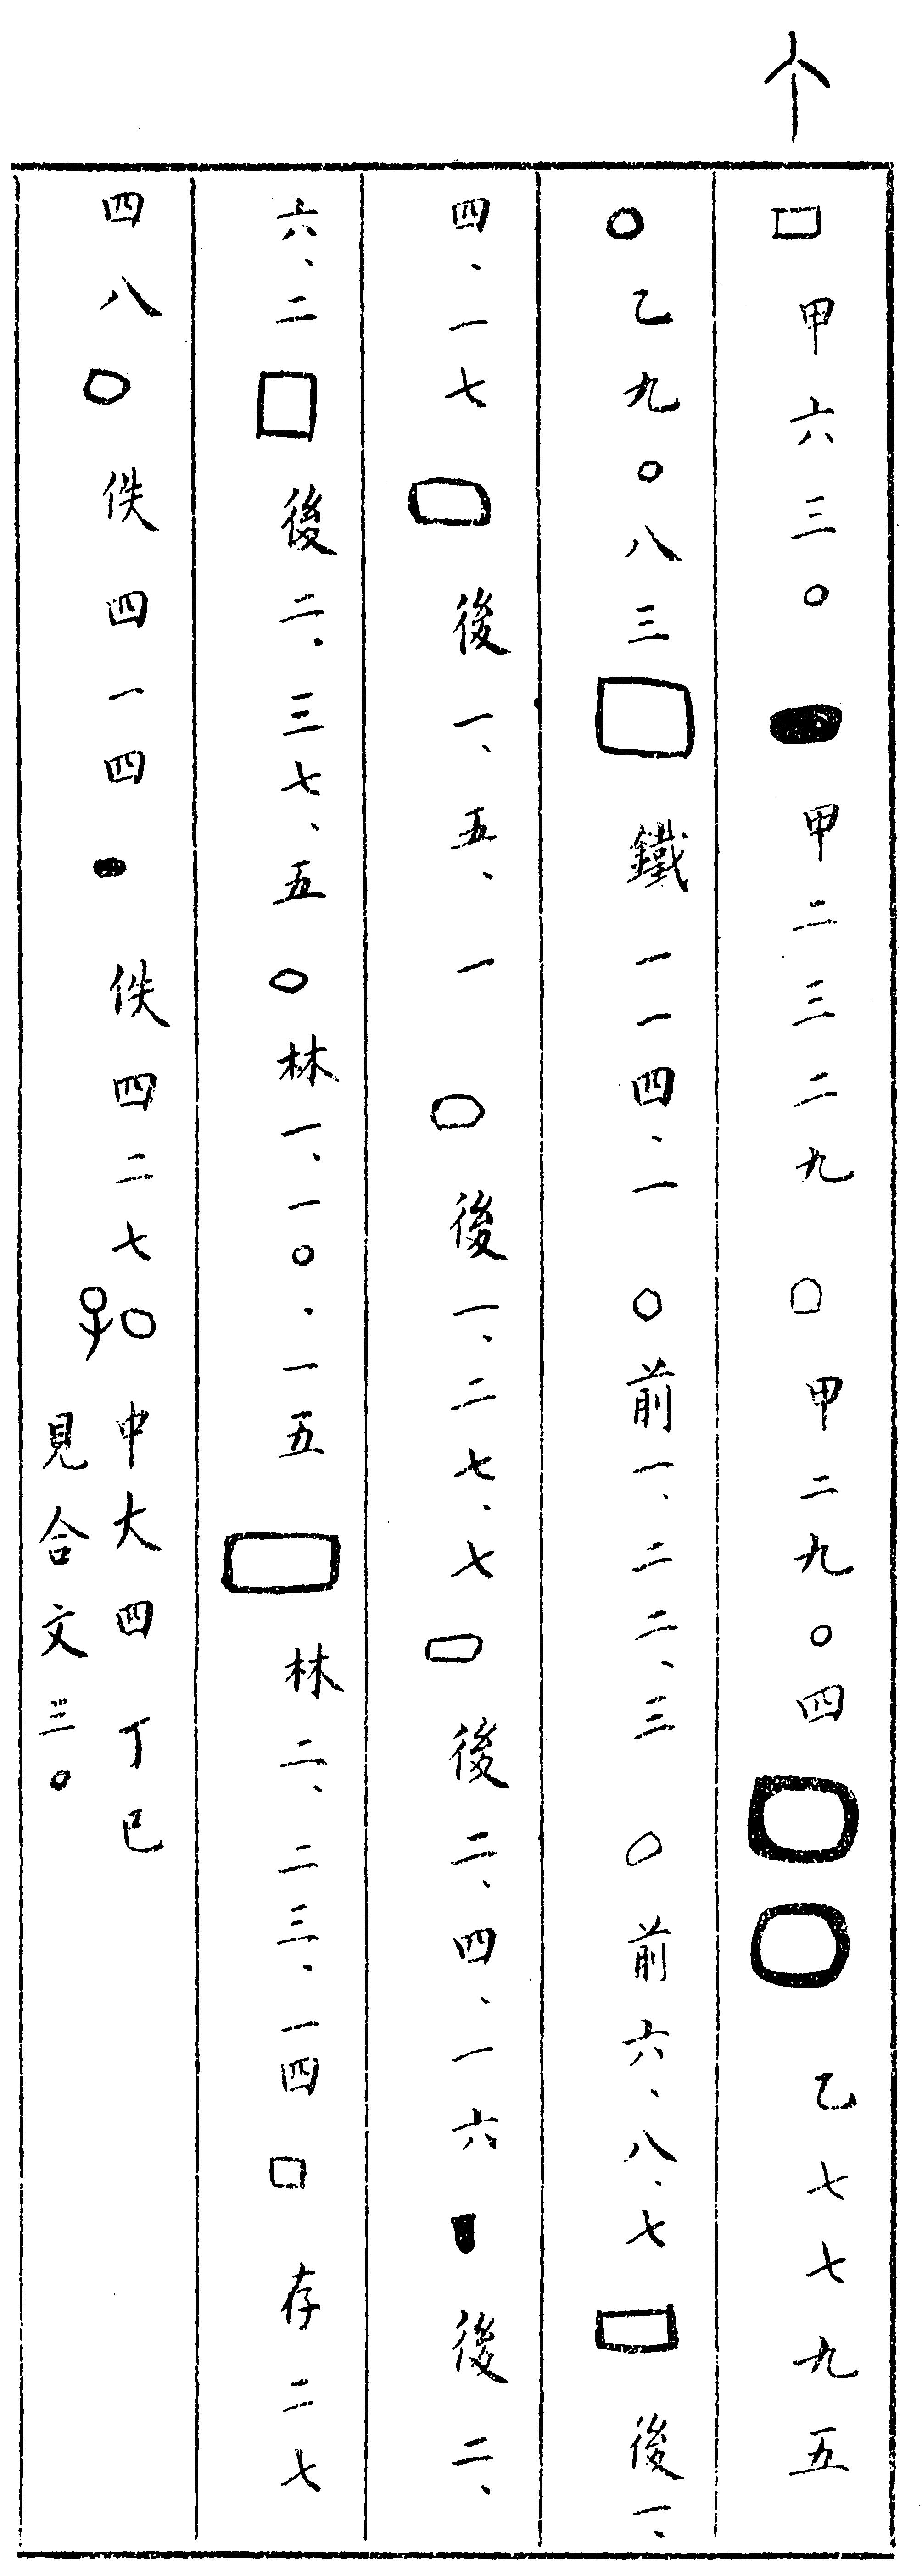 个
□ 甲六三〇 ● 甲二三二九 ○ 甲二九〇四 ○ ○ 乙七七九五
○ 乙九〇八三 □ 鐵一一四.一 ○ 前一.二二.三 ○ 前六.八.七 □ 後一.
四.一七 □ 後一.五.一 ○ 後一.二七.七 □ 後二.四.一六 ▼ 後二.
六.二 □ 後二.三七.五 ○ 林一.一〇.一五 □ 林二.二三.一四 □ 存二七
四八 ○ 佚四一四 ● 佚四二七 ○ 中大四 丁巳
見合文三〇